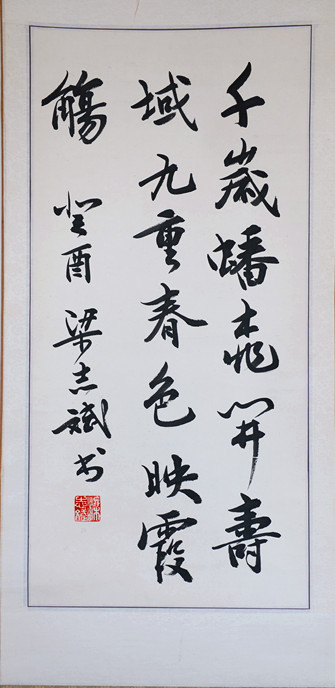 千歲蟠桃開壽
域九重春色映霞
觴 癸酉 梁志斌书